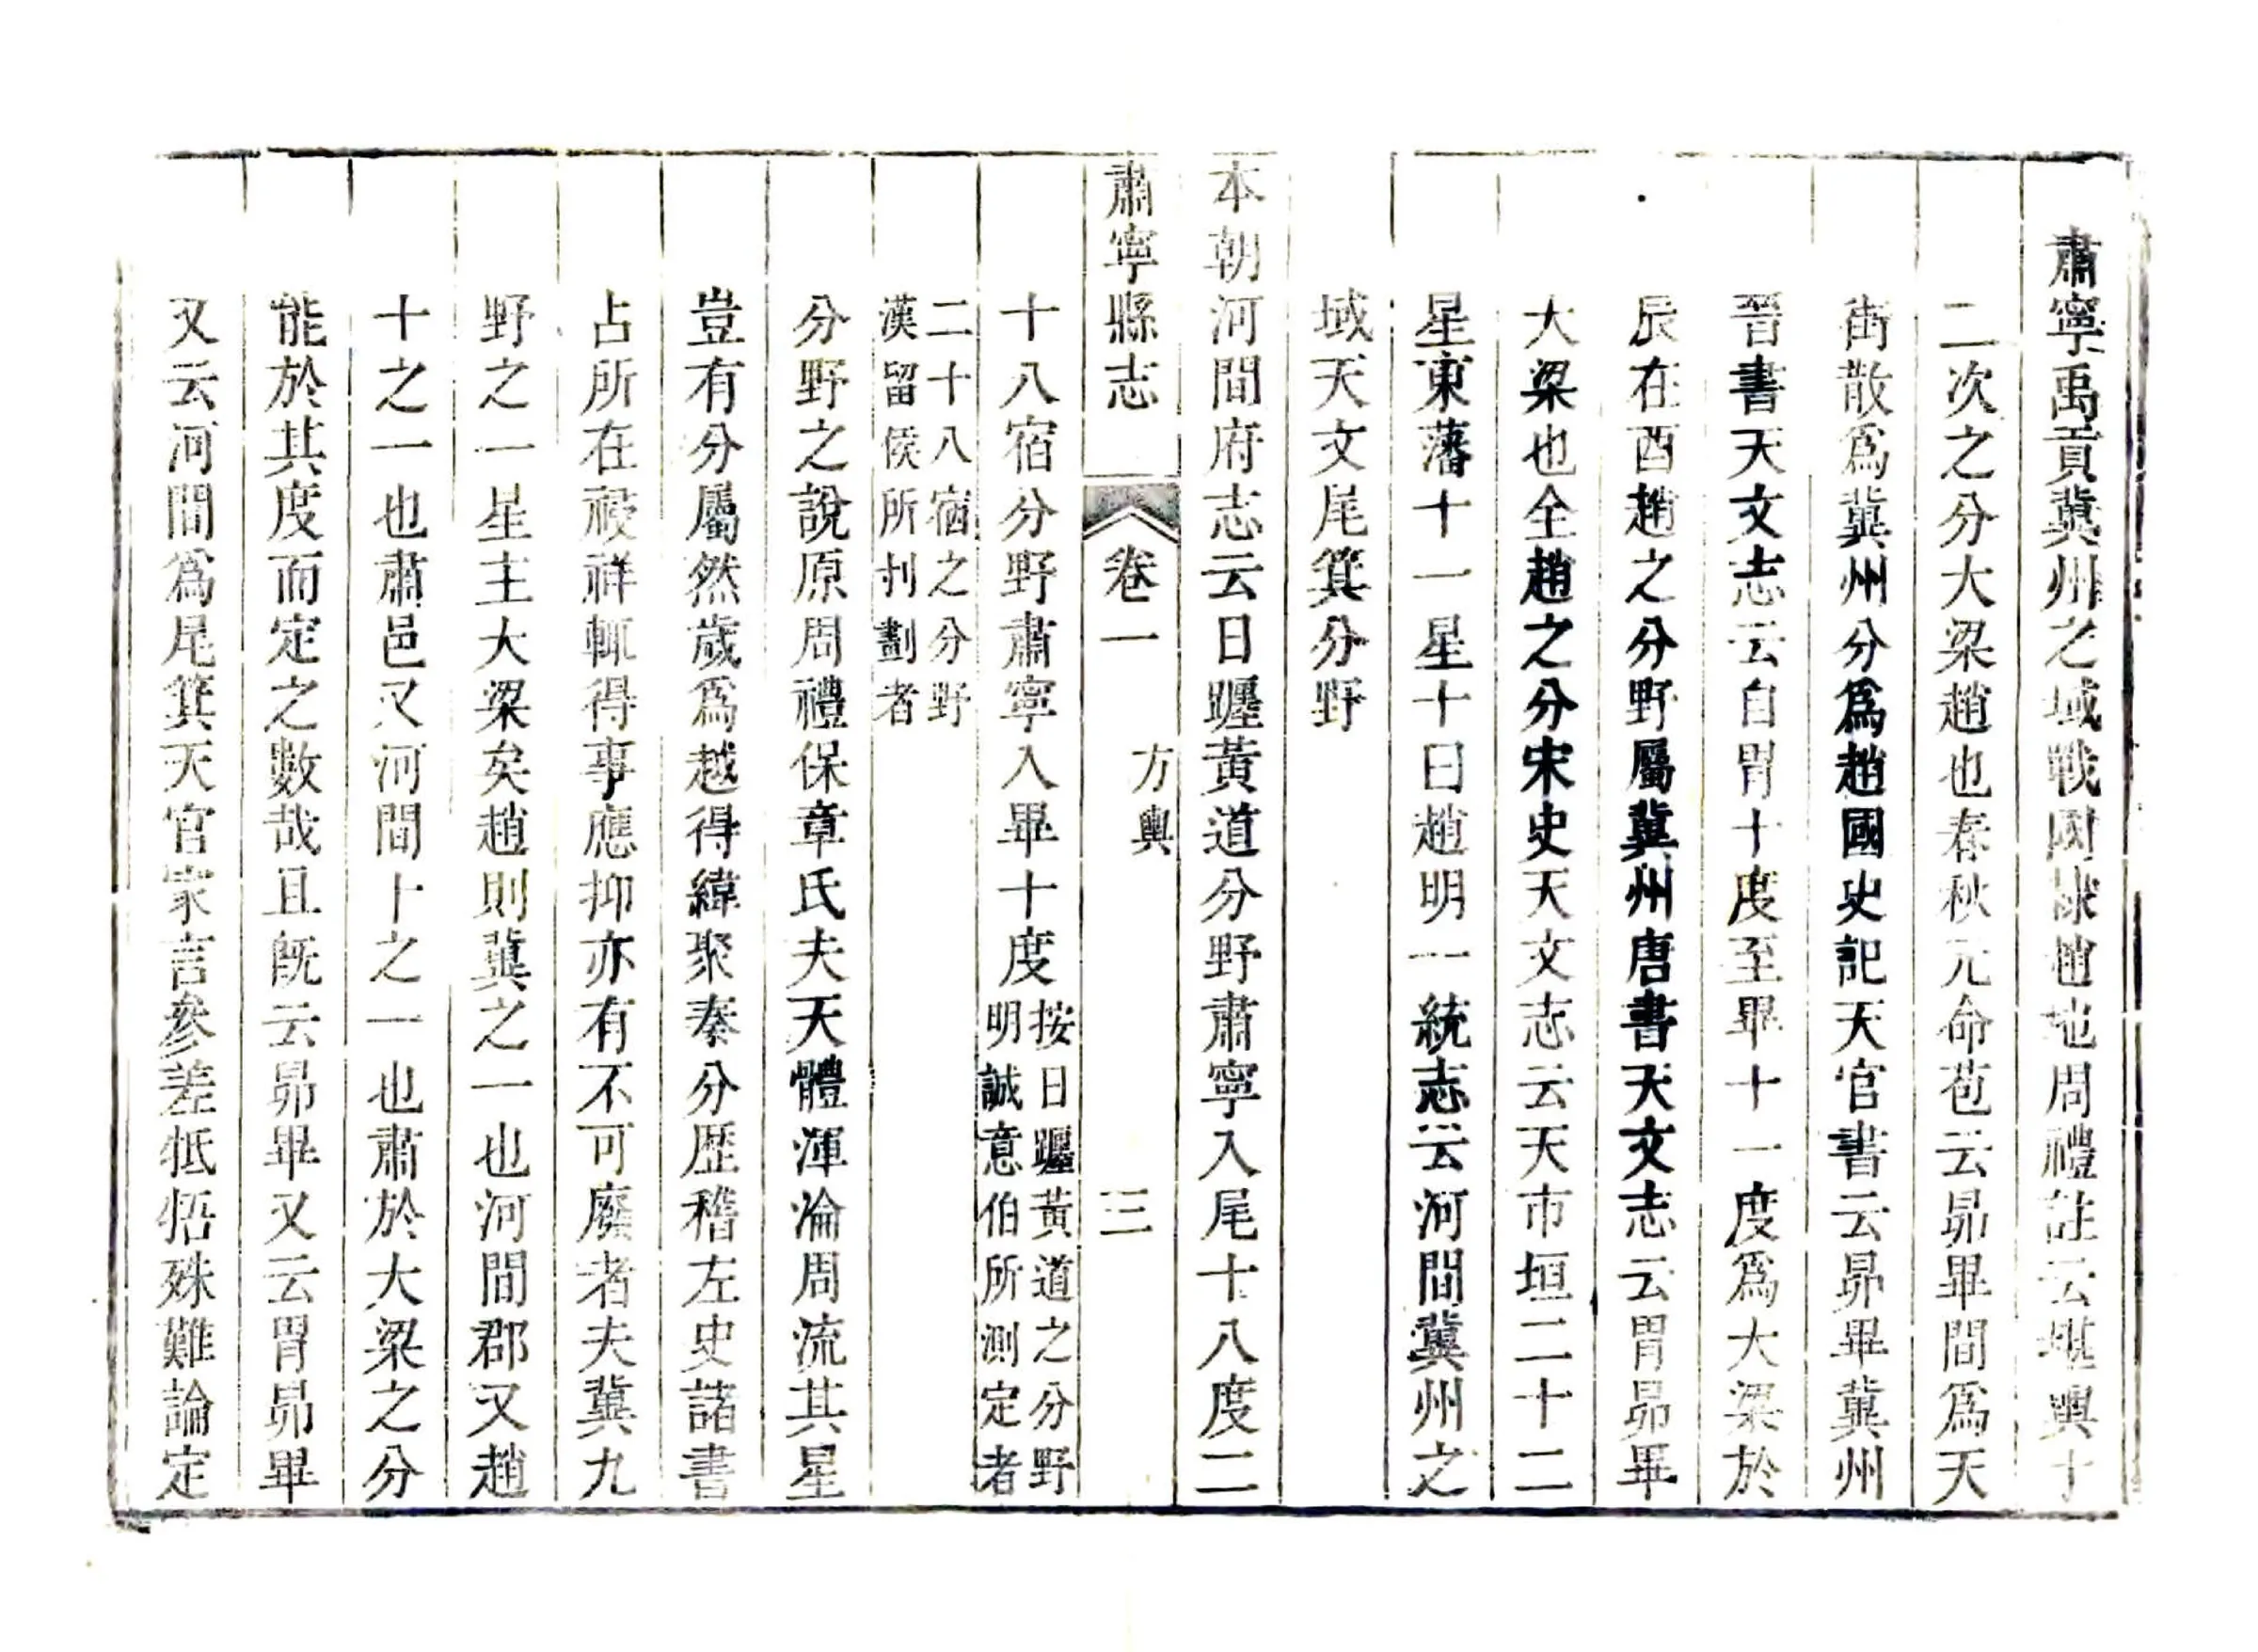 肅寧禹貢冀州之域戰國隸趙地周禮註云堪輿十
二次之分大梁趙也春秋元命苞云昴畢間爲天
街散爲冀州分爲趙國史記天官書云昴畢冀州
晉書天文志云自胃十度至畢十一度爲大梁於
辰在酉趙之分野屬冀州唐書天文志云胃昴畢
大梁也全趙之分宋史天文志云天市垣二十二
星東藩十一星十曰趙明一統志云河間冀州之
域天文尾箕分野
本朝河間府志云日躔黃道分野肅寧入尾十八度二
肅寧縣志 卷一 方輿 三
十八宿分野肅寧入畢十度按日躔黃道之分野
明誠意伯所測定者
二十八宿之分野
漢留侯所刋劃者
分野之說原周禮保章氏夫天體渾淪周流其星
豈有分屬然歲爲越得緯聚秦分歷稽左史諸書
占所在祲祥輒得事應抑亦有不可廢者夫冀九
野之一星主大梁矣趙則冀之一也河間郡又趙
十之一也肅邑又河間十之一也肅於大梁之分
能於其度而定之數哉且旣云昴畢又云胃昴畢
又云河間爲尾箕天官家言參差抵牾殊難論定